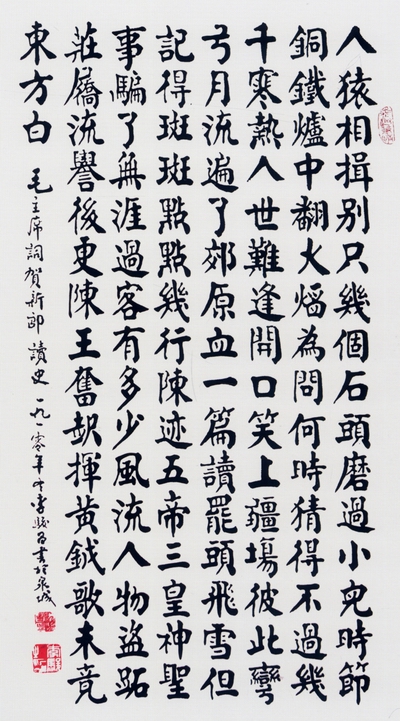 人猿相揖別只幾個石頭磨過小兒時節
銅鐵爐中翻火焰為問何時猜得不過幾
千寒熱人世難逢開口笑上疆場彼此彎
弓月流遍了郊原血一篇讀罷頭飛雪但
記得斑斑點點幾行陳迹五帝三皇神聖
事騙了無涯過客有多少風流人物盜跖
莊屩流譽後更陳王奮起揮黃鉞歌未竟
東方白
毛主席詞賀新郎 讀史 一九八零年 書於泉城